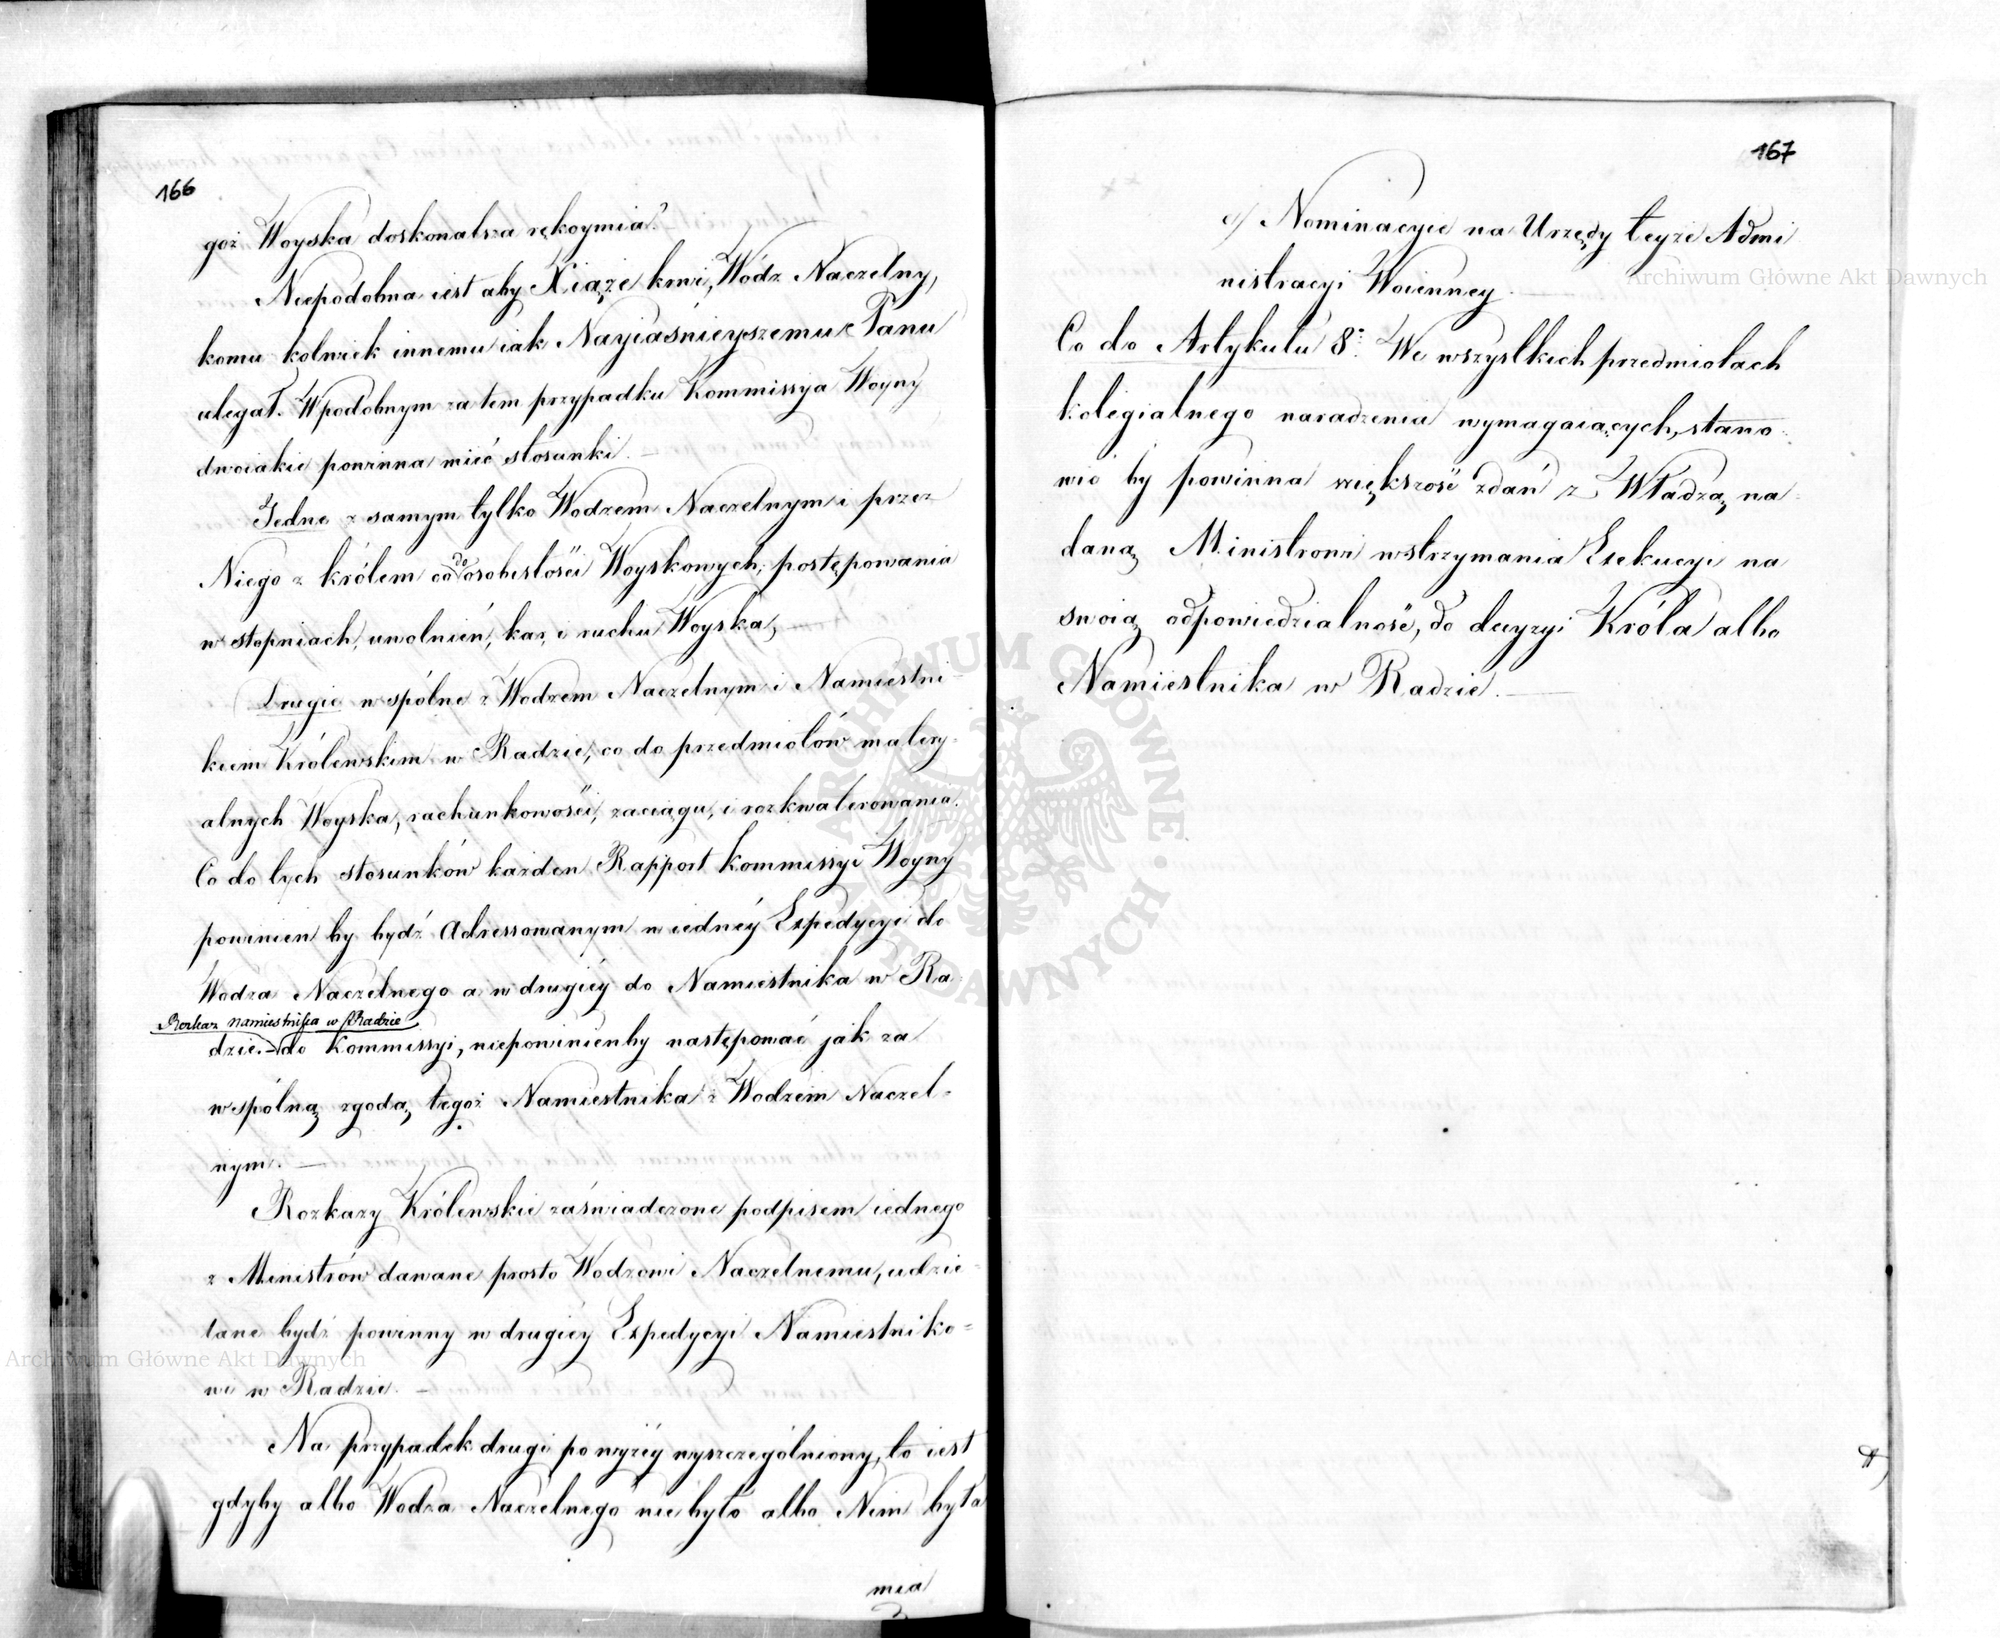 166
goż Woyska doskonalsza rękoymia?
Niepodobna iest aby Xiąże krwi, Wódz Naczelny,
komu kolwiek innemu iak Nayiaśnieyszemu Panu
ulegał. W podobnym zatem przypadku Kommissya Woyny
dwoiakie powinna mieć stosunki.
Jedne z samym tylko Wodzem Naczelnym i przez
Niego z królem co do osobistości Woyskowych, postępowania
w stopniach, uwolnień, kar, i ruchu Woyska,
Drugie w spólne z Wodzem Naczelnym i Namiestni-
kiem Królewskim w Radzie, co do przedmiotów matery-
alnych Woyska, rachunkowości, zaciągu, i rozkwaterowania.
Co do tych stosunków każden Rapport kommissyi Woyny
powinien by bydź Adressowanym w iednéy Expedycyi do
Wodza Naczelnego a w drugiéy do Namiestnika w Ra-
Rozkaz Namiestnika w Radzie
dzie. – do Kommissyi, niepowinienby następować jak za
wspólną zgodą tegoż Namiestnika z Wodzem Naczel-
nym. —
Rozkazy Królewskie zaświadczone podpisem iednego
z Ministrów dawane prosto Wodzowi Naczelnemu, udzie-
lane bydź powinny w drugiéy Expedycyi Namiestniko=
wi w Radzie. —
Na przypadek drugi powyżéy wyszczególniony, to iest
gdyby albo Wodza Naczelnego nie było albo Nim była
mia
167
e/ Nominacyie na Urzędy teyże Admi
nistracyi Woienney.
Co do Artykułu 8: We wszystkich przedmiotach
kolegialnego naradzenia wymagaiących, stano-
wić by powinna większość zdań z Władzą na-
daną Ministrowi wstrzymania Exekucyi na
swoią odpowiedzialność, do decyzyi Króla albo
Namiestnika w Radzie. —
Archiwum Główne Akt Dawnych
Archiwum Główne Akt Dawnych
ARCHIWUM GŁÓWNE · AKT DAWNYCH ·